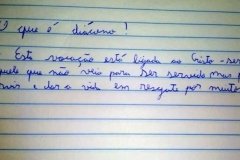 O que é diácono!
Esta vocação está ligada ao Cristo-ser
quele que não veio para ser servido mas p
e dar a vida em resgate por muito